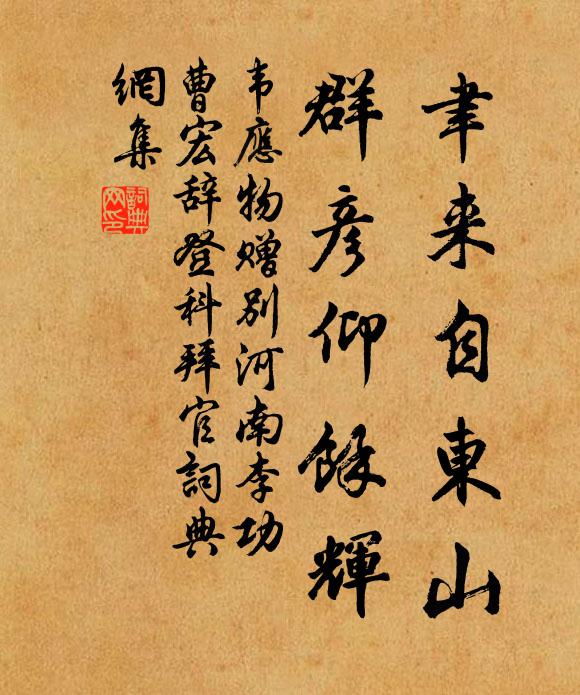 聿来自東山
群彦仰餘輝
韦應物贈别河南李功
曹宏辞登科拜官詞典
網集
詞典
网印